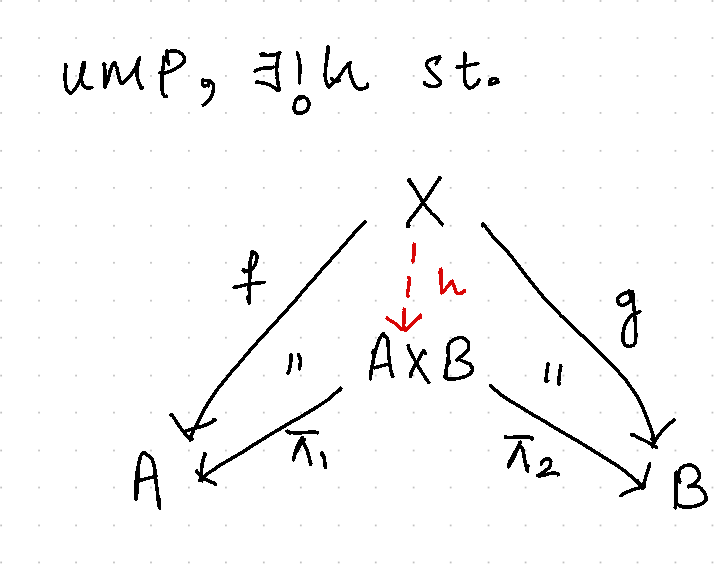 ump, ∃!h st.
X
f
h
g
" A×B "
π₁ π₂
A B